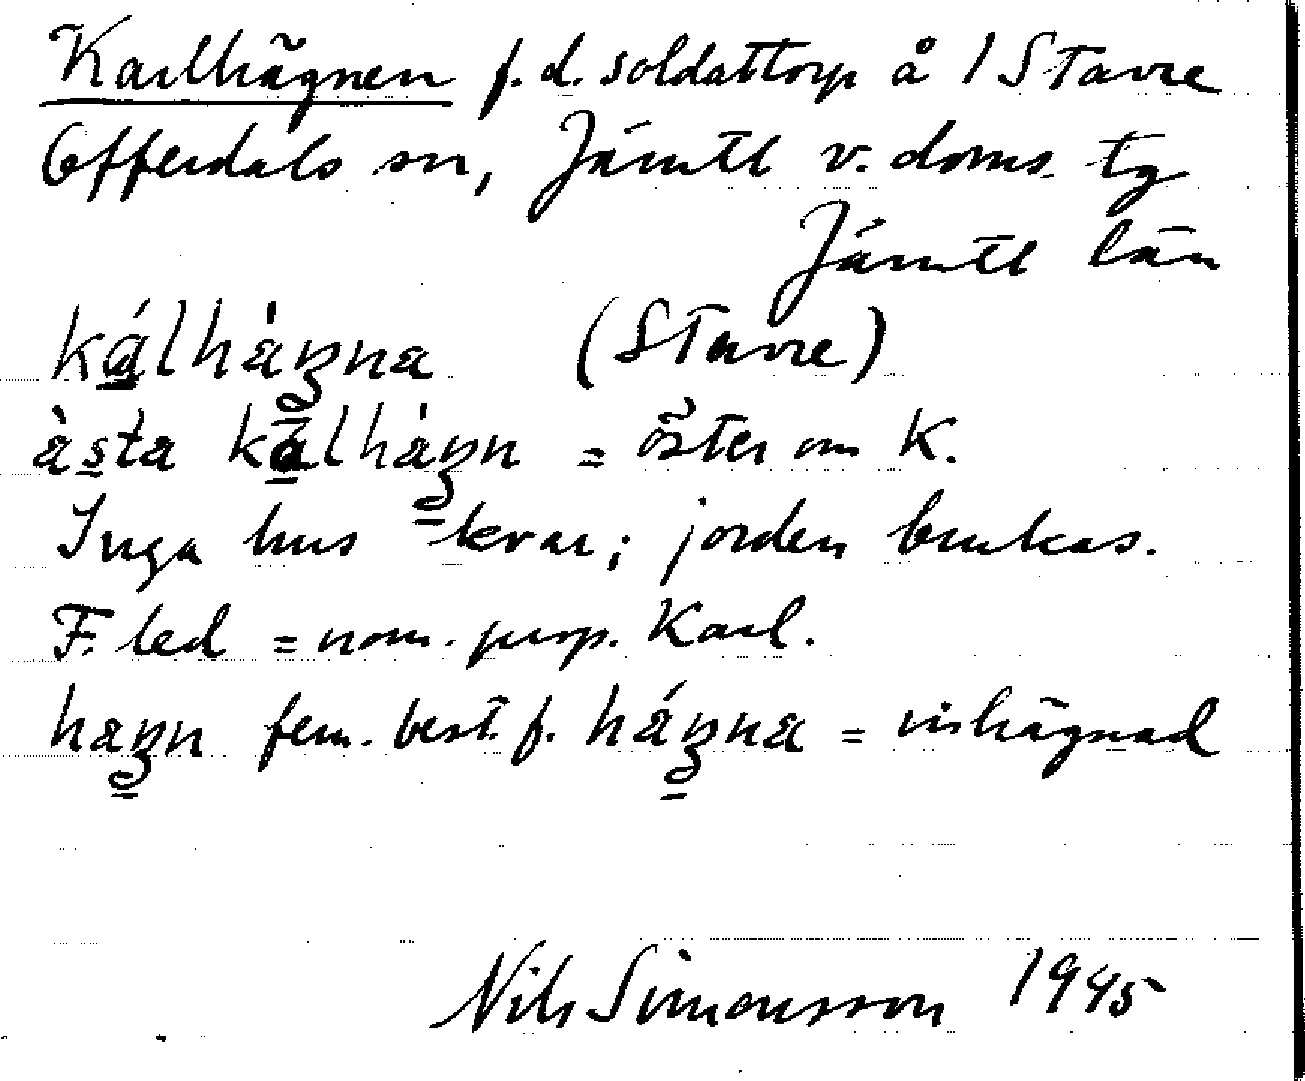 Karlhägnen f.d. soldattorp å 1 Stavre
Offerdals sn, Jämtl v. doms. tg
Jämtl län
kálhàgna (Stavre)
àsta kálhàgn = öster om K.
Inga hus kvar; jorden brukas.
F. led = nom. prop. Karl.
hagn fem. best. f. hágna = inhägnad
Nils Simonsson 1945